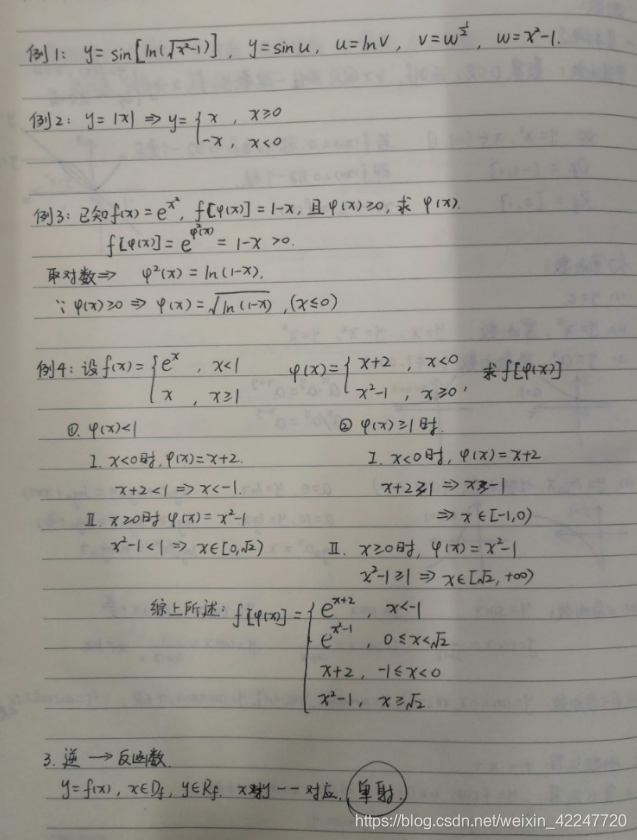 例1: y=sin[ln(√x²-1)], y=sinu, u=lnv, v=w^½, w=x²-1.
例2: y=|x| ⇒ y={x, x≥0
-x, x<0
例3: 已知f(x)=e^x², f[φ(x)]=1-x, 且φ(x)≥0, 求φ(x).
f[φ(x)]=e^φ²(x)=1-x>0.
取对数⇒ φ²(x)=ln(1-x).
∵φ(x)≥0 ⇒ φ(x)=√ln(1-x), (x≤0)
例4: 设f(x)={e^x, x<1 φ(x)={x+2, x<0 求f[φ(x)]
x, x≥1 x²-1, x≥0,
①. φ(x)<1 ② φ(x)≥1时.
I. x<0时, φ(x)=x+2. I. x<0时, φ(x)=x+2
x+2<1 ⇒ x<-1. x+2≥1 ⇒ x≥-1
II. x≥0时 φ(x)=x²-1 ⇒ x∈[-1,0)
x²-1<1 ⇒ x∈[0,√2) II. x≥0时, φ(x)=x²-1
x²-1≥1 ⇒ x∈[√2, +∞)
综上所述: f[φ(x)]={e^x+2, x<-1
e^x²-1, 0≤x<√2
x+2, -1≤x<0
x²-1, x≥√2
3. 逆 → 反函数.
y=f(x), x∈Df, y∈Rf. x对y一一对应. 单射.
https://blog.csdn.net/weixin_42247720